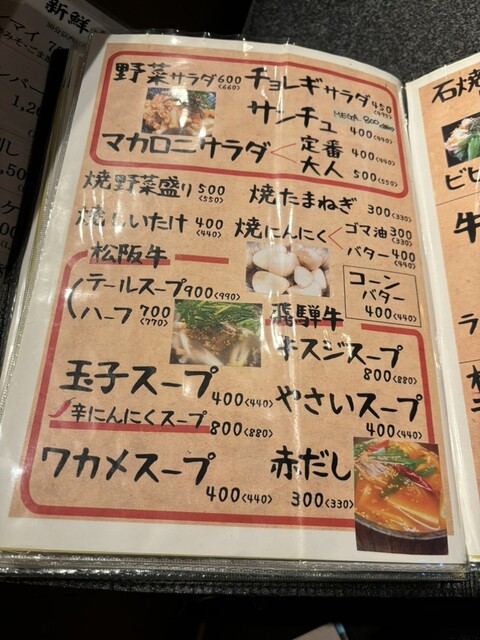 新鮮
野菜サラダ 600<660>
チョレギサラダ 450<495>
MEGA 800<880>
サンチュ 400<440>
マカロニサラダ < 定番 400<440>
大人 500<550>
焼野菜盛り 500<550>
焼たまねぎ 300<330>
焼しいたけ 400<440>
焼にんにく < ゴマ油 300<330>
バター 400<440>
松阪牛
テールスープ 900<990>
ハーフ 700<770>
コーン
バター
400<440>
飛騨牛
牛スジスープ
800<880>
玉子スープ 400<440>
やさいスープ
400<440>
辛にんにくスープ 800<880>
ワカメスープ
400<440>
赤だし
300<330>
石焼
ビビ
牛